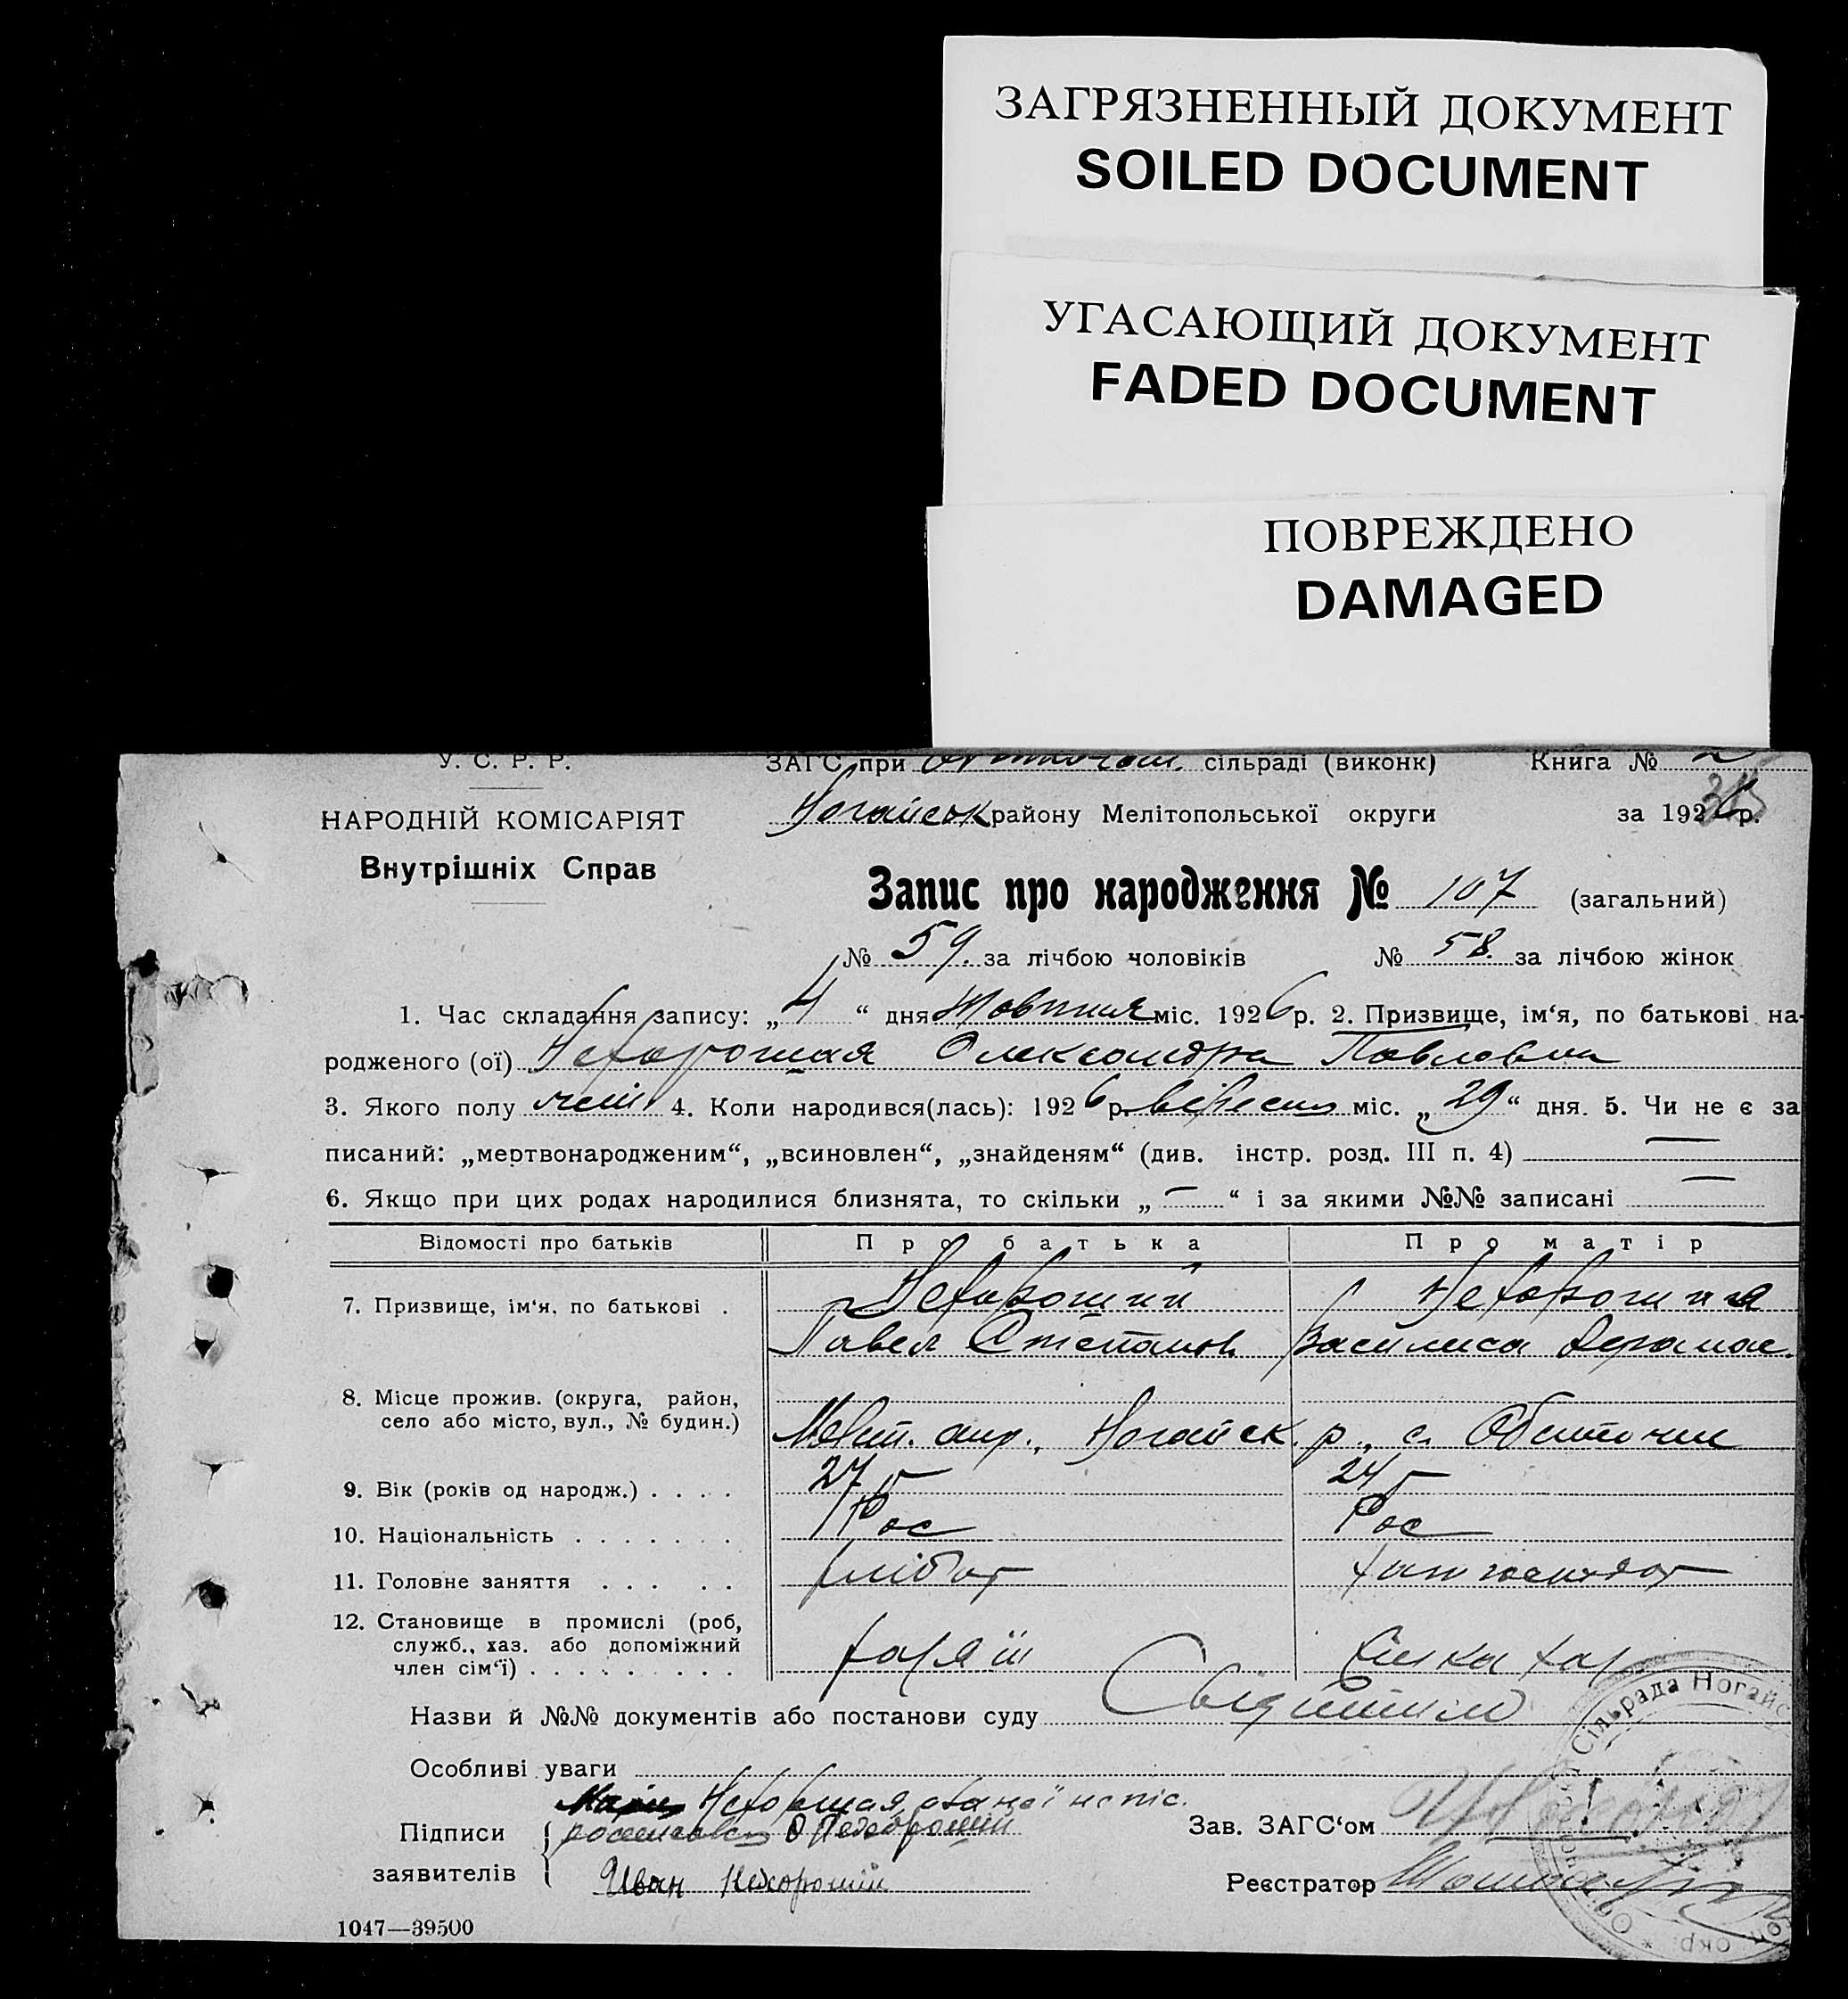 ЗАГРЯЗНЕННЫЙ ДОКУМЕНТ
SOILED DOCUMENT
УГАСАЮЩИЙ ДОКУМЕНТ
FADED DOCUMENT
ПОВРЕЖДЕНО
DAMAGED
У. С. Р. Р. ЗАГС при сільраді (виконк) Книга № 2
НАРОДНІЙ КОМІСАРІЯТ Ногайськ району Мелітопольської округи за 1926 р.
Внутрішніх Справ
Запис про народження № 107 (загальний)
№ 59. за лічбою чоловіків № 58. за лічбою жінок
1. Час складання запису: „ 4 “ дня Жовтня міс. 1926 р. 2. Призвище, ім‘я, по батькові на-
родженого (ої) Нехорошая Олександра Павловна
3. Якого полу жін 4. Коли народився(лась): 1926 р. вересня міс. „ 29 “ дня. 5. Чи не є за
писаний: „мертвонародженим“, „всиновлен“, „знайденям“ (див. інстр. розд. III п. 4) —
6. Якщо при цих родах народилися близнята, то скільки „ — “ і за якими №№ записані —
Відомості про батьків Про батька Про матір
7. Призвище, ім‘я, по батькові . Нехороший Нехорошия
Павел Степанов. Василиса
8. Місце прожив. (округа, район,
село або місто, вул., № будин.) Меліт. окр., Ногайск. р., с. Обиточне
9. Вік (років од народж.) . . . . 27 р 24 р
10. Національність . . . . . . . Рос Рос
11. Головне заняття . . . . . хлібор хат господар
12. Становище в промислі (роб,
служб., хаз. або допоміжний
член сім‘ї) . . . . . . . . . хазяїн жінка хаз
Назви й №№ документів або постанови суду
Особливі уваги
Нехорошая
Підписи Нехороший Зав. ЗАГС‘ом
заявителів Иван Нехороший Реєстратор
Сільрада Ногайс
окр.
1047—39500